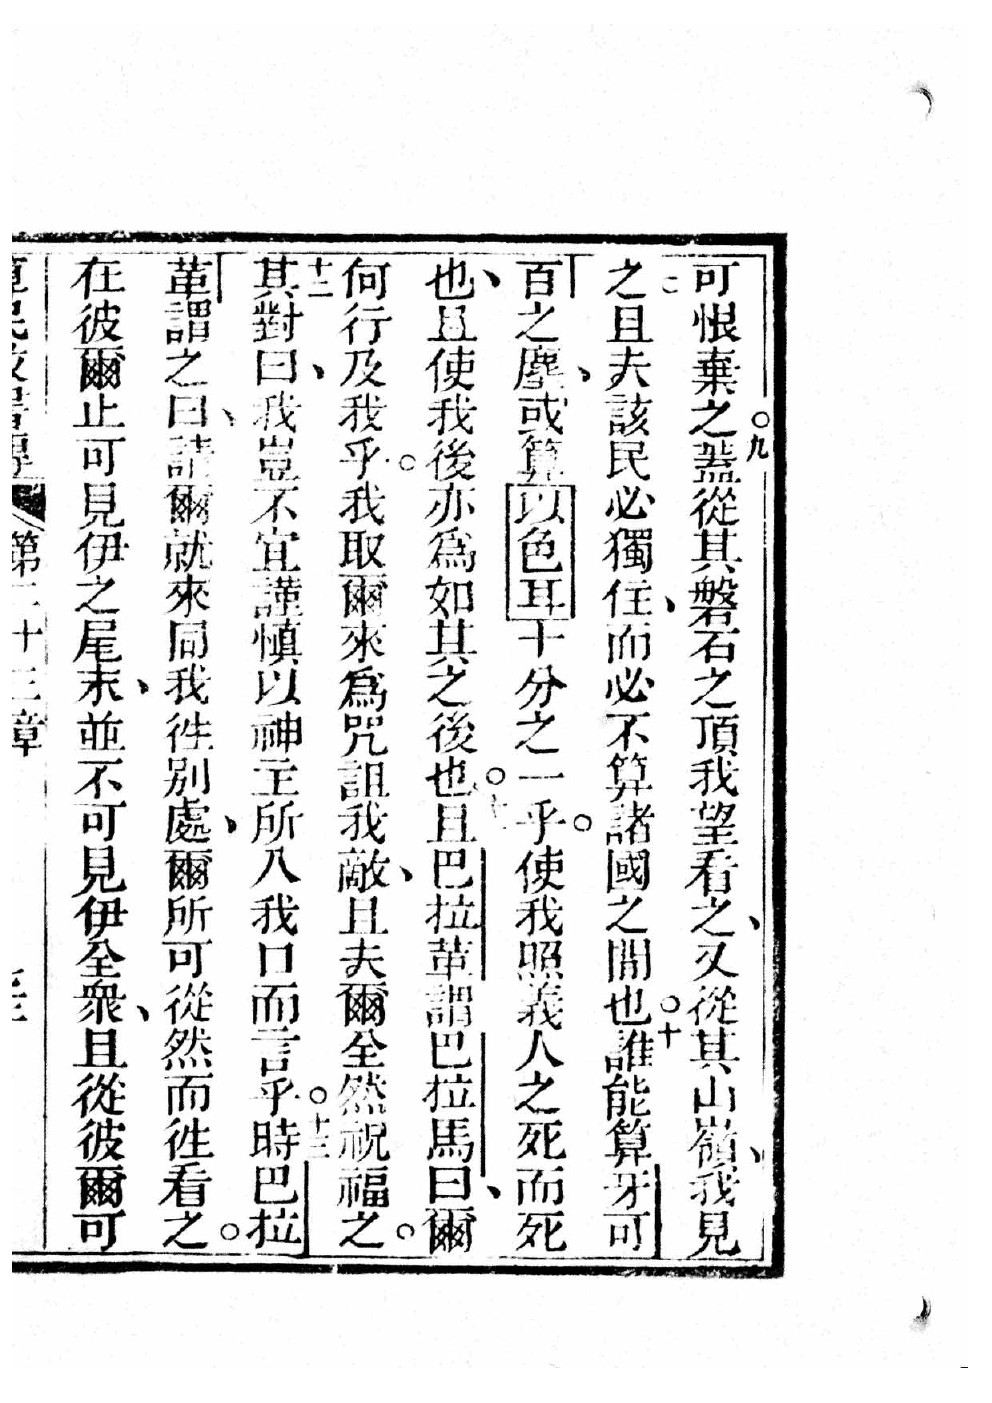 可恨棄之九蓋從其磐石之頂我望看之又從其山嶺我見
之且夫該民必獨住而必不算諸國之間也十誰能算牙可
百之塵或算以色耳十分之一乎使我照義人之死而死
也且使我後亦爲如其之後也且巴拉革謂巴拉馬曰爾
何行及我乎我取爾來爲咒詛我敵且夫爾全然祝福之
十二其對曰我豈不宜謹慎以神主所入我口而言乎十三時巴拉
革謂之曰請爾就來同我徃別處爾所可從然而徃看之
在彼爾止可見伊之尾末並不可見伊全衆且從彼爾可
第二十三章